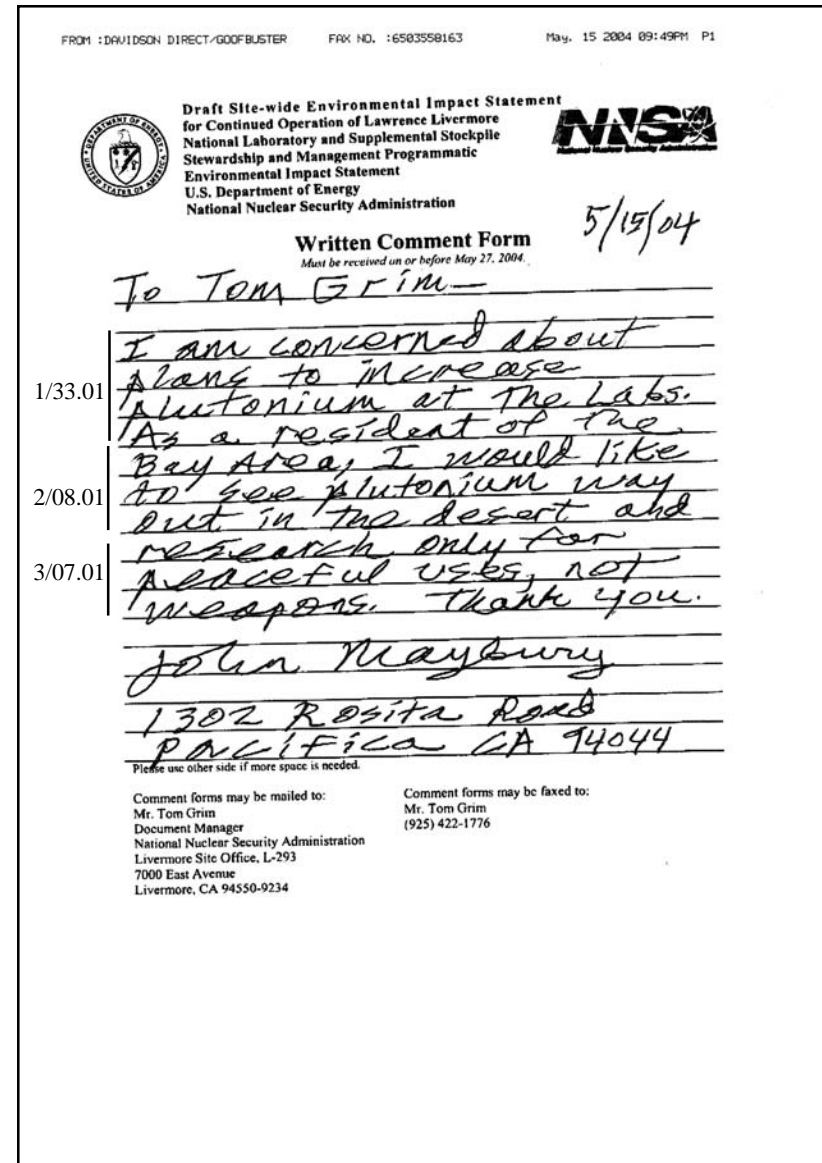 FROM :DAVIDSON DIRECT/GOOFBUSTER FAX NO. :6503558163 May. 15 2004 09:49PM P1
DEPARTMENT OF ENERGY
UNITED STATES OF AMERICA
Draft Site-wide Environmental Impact Statement
for Continued Operation of Lawrence Livermore
National Laboratory and Supplemental Stockpile
Stewardship and Management Programmatic
Environmental Impact Statement
U.S. Department of Energy
National Nuclear Security Administration
NNSA
National Nuclear Security Administration
5/15/04
Written Comment Form
Must be received on or before May 27, 2004.
To Tom Grim—
I am concerned about
plans to increase
1/33.01
plutonium at the Labs.
As a resident of the
Bay Area, I would like
2/08.01
to see plutonium way
out in the desert and
research only for
3/07.01
peaceful uses, not
weapons. Thank you.
John Maybury
1302 Rosita Road
Pacifica CA 94044
Please use other side if more space is needed.
Comment forms may be mailed to:
Mr. Tom Grim
Document Manager
National Nuclear Security Administration
Livermore Site Office, L-293
7000 East Avenue
Livermore, CA 94550-9234
Comment forms may be faxed to:
Mr. Tom Grim
(925) 422-1776